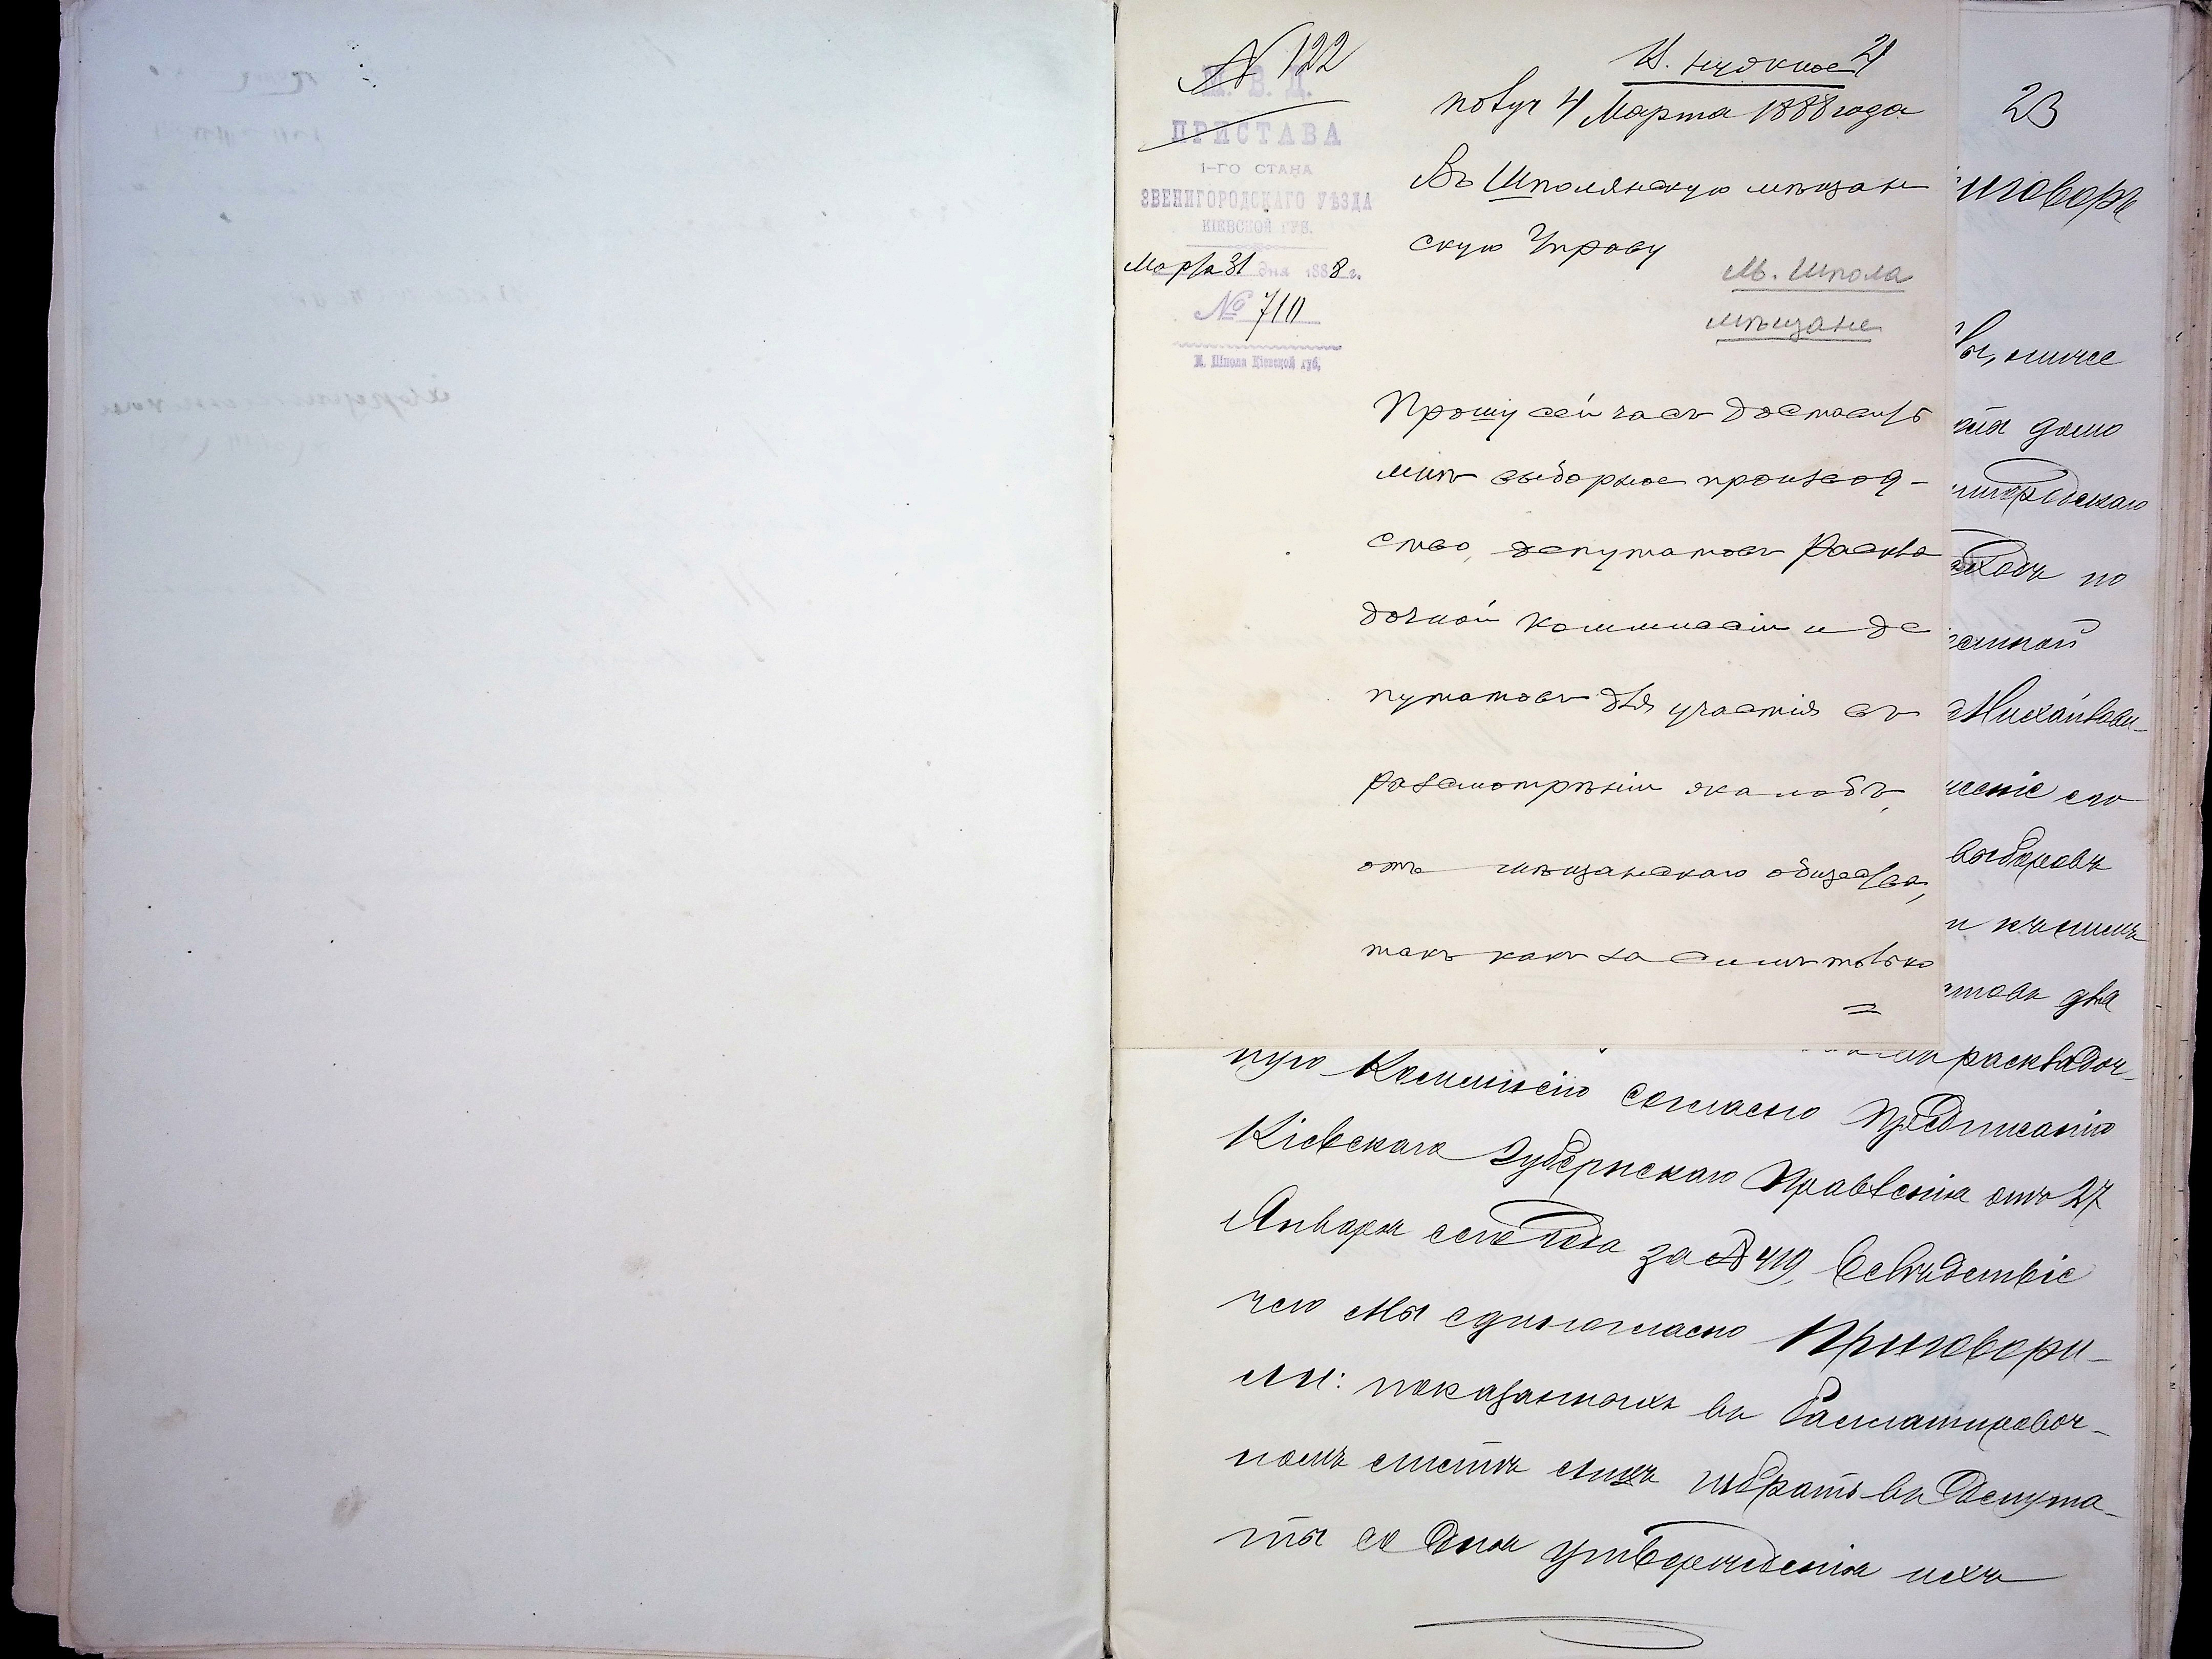 № 122
М. В. Д.
ПРИСТАВА
1-ГО СТАНА
ЗВЕНИГОРОДСКАГО УѢЗДА
КІЕВСКОЙ ГУБ.
Марта 31 дня 1888 г.
№ 710
М. Шпола Кіевской губ.
И. нужное 21
получ 4 Марта 1888 года
Въ Шполянскую мѣщан
скую Управу
М. Шпола
мѣщане
Прошу сейчасъ доставить
мнѣ выборное производ-
ство, депутатовъ раскла
дочной коммиссіи и де
путатовъ для участія въ
разсмотрѣніи жалобъ,
отъ мѣщанскаго общества,
такъ какъ за симъ только
23
иговоръ
дамо
по
Михайлови-
его
выборовъ
и
два
расладоч-
ную Коммисію согласно Предписанію
Кіевскаго Губернскаго Правленія отъ 27
Января сего года за № 419, Вслѣдствіе
чего мы единогласно Приговори-
ли: показанныхъ въ Баллотировоч-
номъ листѣ лицъ избрать въ Депута-
ты со дня утвержденія ихъ